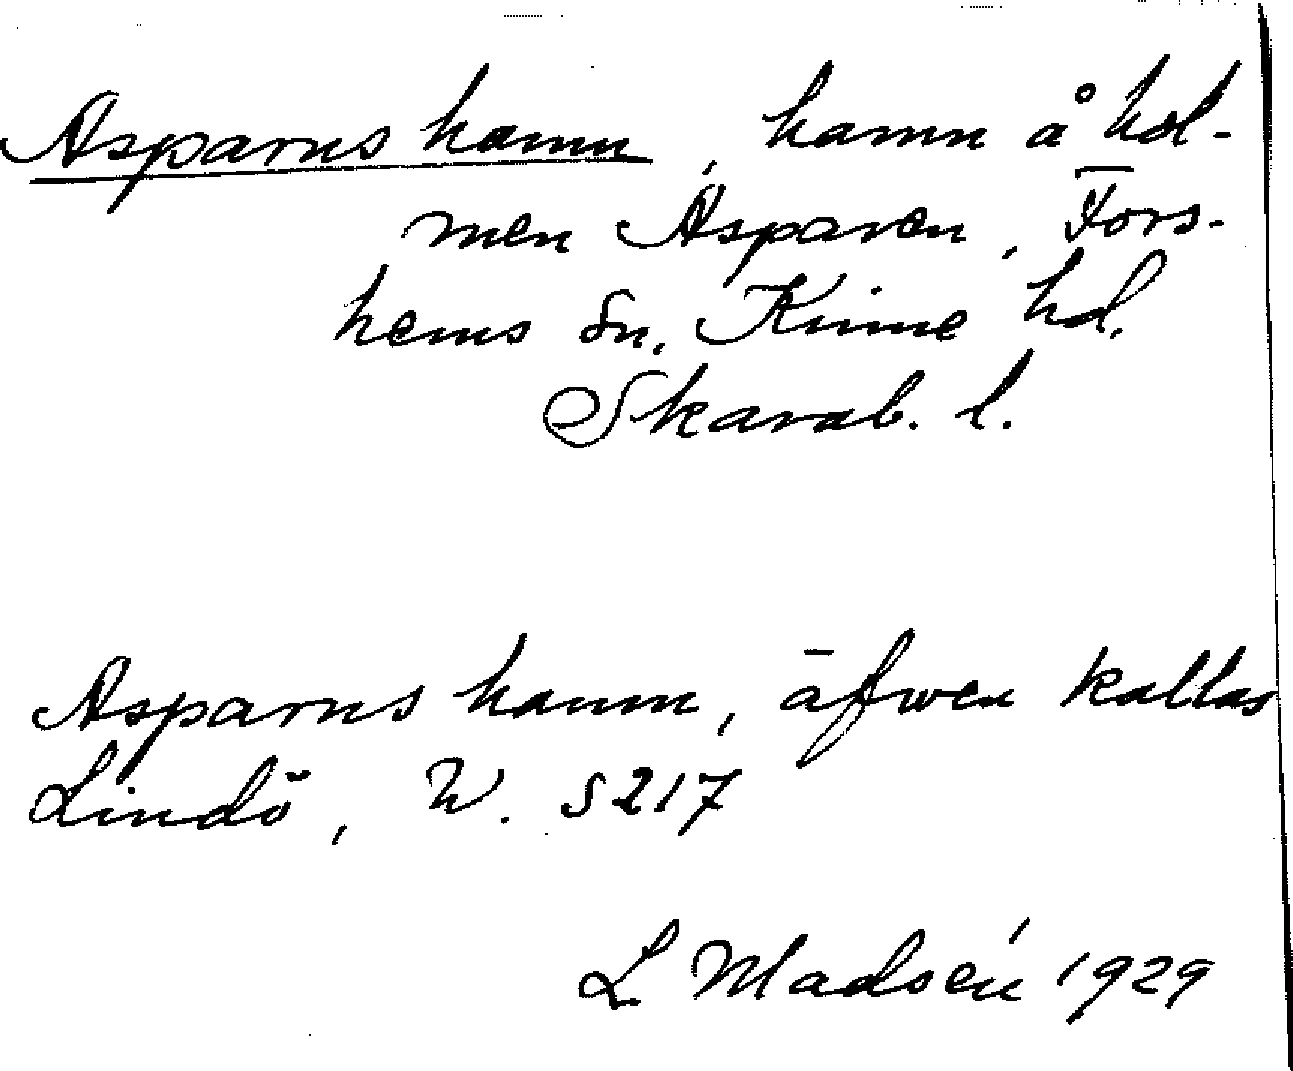 Asparns hamn, hamn å hol-
men Asparen, Fors-
hems sn, Kinne hd.
Skarab. l.
Asparns hamn, äfwen kallas
Lindö, W. s 217
L Madsén 1929